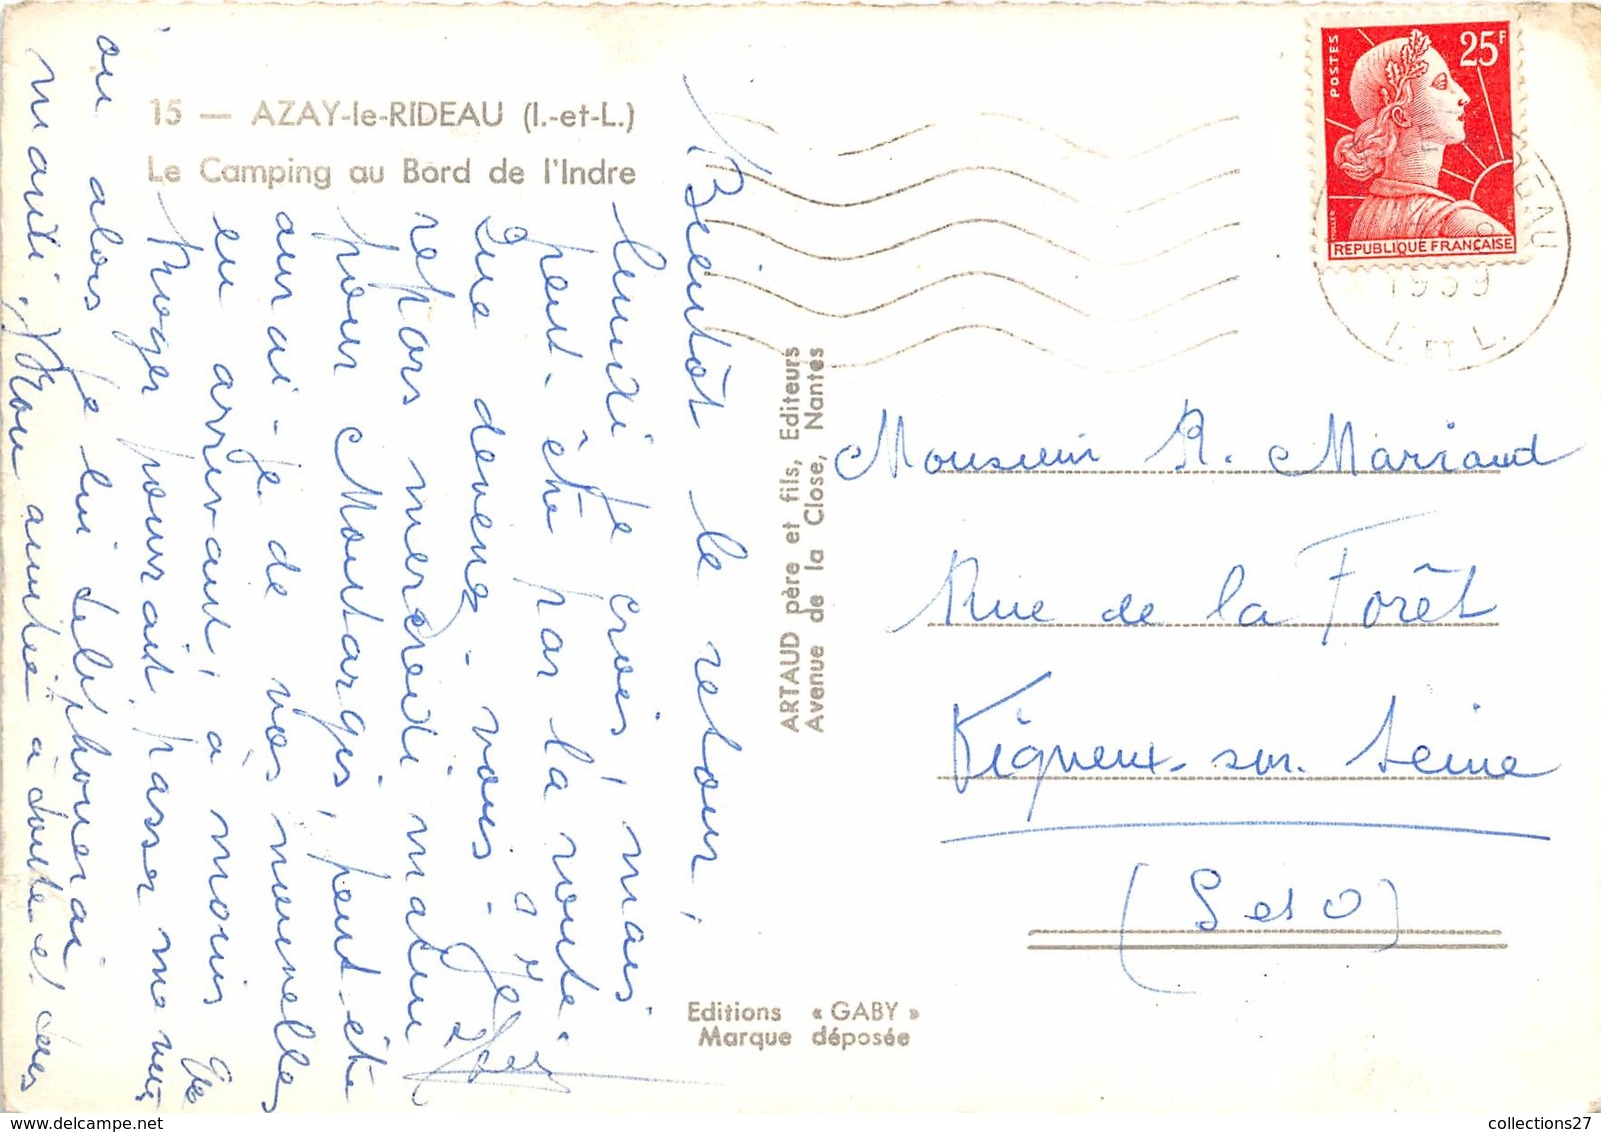 15 — AZAY-le-RIDEAU (I.-et-L.)
Le Camping au Bord de l'Indre
Bientôt le retour,
lundi je crois, mais
peut-être par la route.
Que devenez-vous - Je
repars mercredi matin
pour Montargis, peut-être
aurai-je de vos nouvelles
en arrivant, à moins que
Roger pourrait passer me voir
ou alors je lui téléphonerai
mardi. Mon amitié à toute et
ARTAUD père et fils, Editeurs
Avenue de la Close, Nantes
Editions « GABY »
Marque déposée
POSTES
25F
REPUBLIQUE FRANÇAISE
1959
I. ET L.
Monsieur R. Marraud
Rue de la Forêt
Vigneux-sur-Seine
(S et O)
collections27